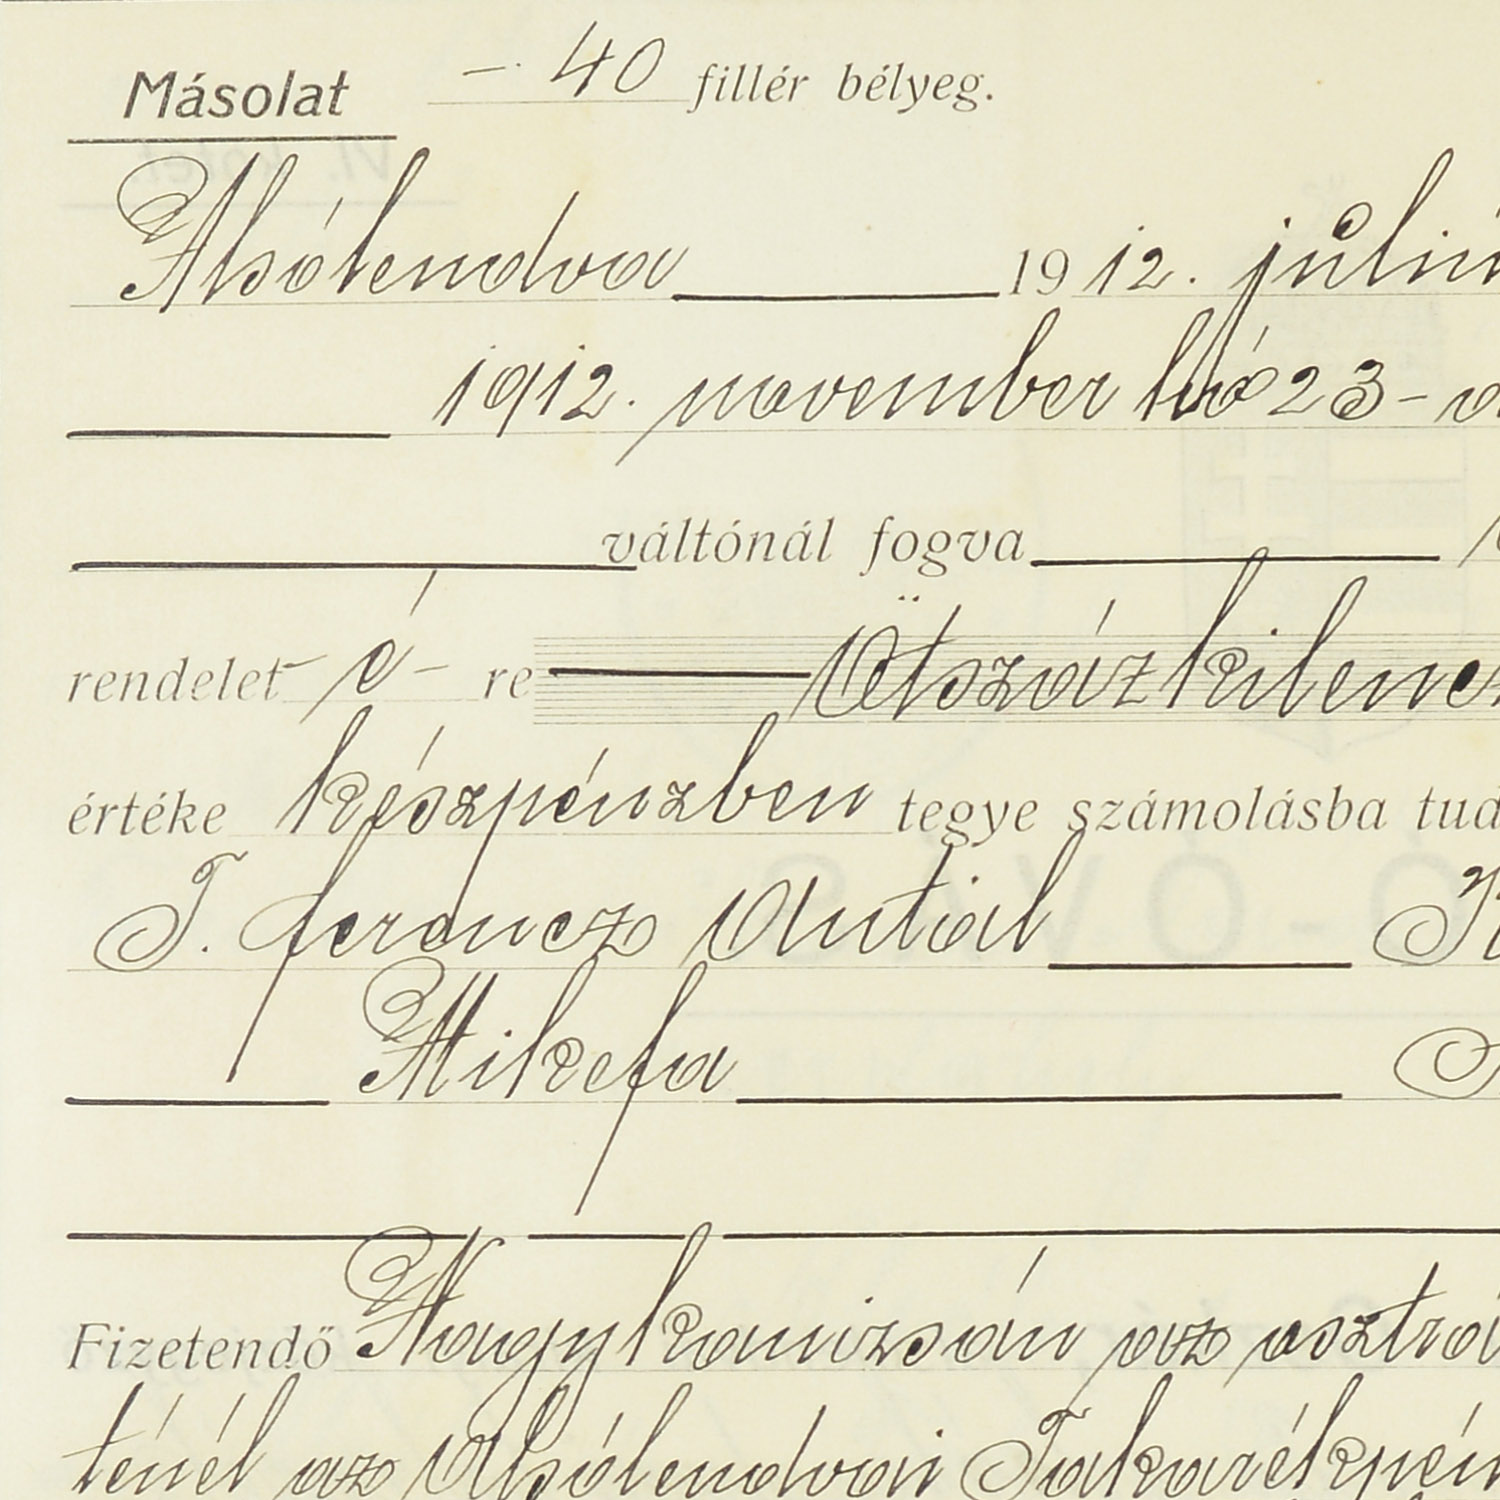 Másolat – 40 fillér bélyeg.
Alsólendva 1912. július
1912. november hó 23-
váltónál fogva
rendelet é - re Ötszázkilencz
értéke készpénzben tegye számolásba tud
T. ferencz Antal
Mikefa
Fizetendő Nagykanizsán az osztrá
ténél az Alsólendvai Takarékpén